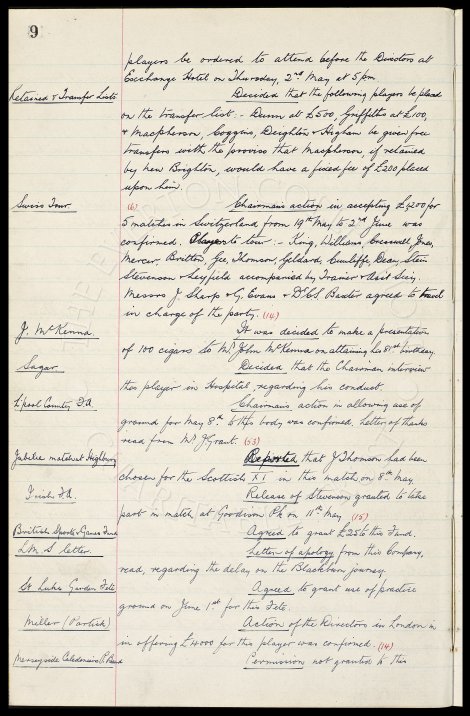 9
players be ordered to attend before the Directors at
Exchange Hotel on Thursday, 2nd May at 5 pm
Retained & Transfer Lists
Decided that the following players be placed
on the transfer list :- Dunn at £500, Griffiths at £100,
& Macpherson, Coggins, Deighton & Higham be given free
transfers with the proviso that Macpherson, if retained
by New Brighton, would have a fixed fee of £200 placed
upon him.
Swiss Tour
(6) Chairman's action in accepting £1200 for
5 matches in Switzerland from 19th May to 2nd June was
confirmed. Players to tour :- King, Williams, Cresswell, Jones,
Mercer, Britton, Gee, Thomson, Geldard, Cunliffe, Dean, Stein
Stevenson & Leyfield accompanied by Trainer & Asst Secy.
Messrs J. Sharp & G. Evans & Dr C S Baxter agreed to travel
in charge of the party. (14)
J. McKenna.
It was decided to make a presentation
of 100 cigars to Mr John McKenna on attaining his 81st birthday.
Sagar
Decided that the Chairman interview
this player in Hospital, regarding his conduct.
L'pool County F.A.
Chairman's action in allowing use of
ground for May 8th to this body was confirmed, letter of thanks
read from Mr J Grant. (53)
Jubilee match at Highbury
Reported that J Thomson had been
chosen for the Scottish XI in this match on 8th May
Irish F.A.
Release of Stevenson granted to take
part in match at Goodison Pk on 11th May. (15)
British Sports & Games Fund
Agreed to grant £25 to this Fund.
L.M.S letter.
Letter of apology from this Company,
read, regarding the delay on the Blackburn journey.
St Lukes Garden Fete
Agreed to grant use of practice
ground on June 1st for this Fete.
Miller (Partick)
Action of the Directors in London in
in offering £4000 for this player was confirmed. (14)
Merseyside Caledonians P. Band
Permission not granted to this